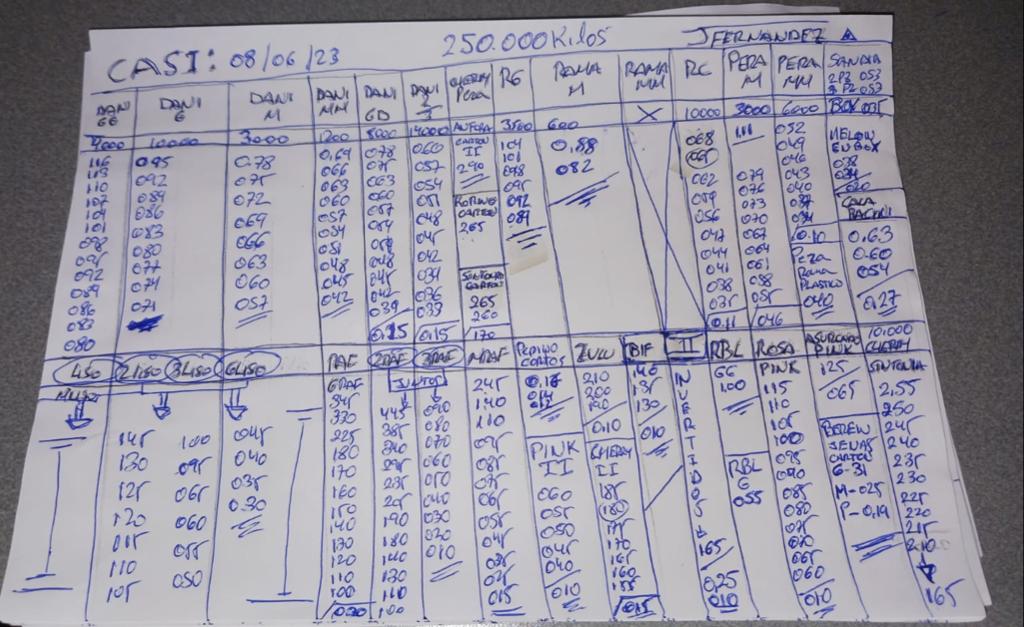 CASI: 08/06/23 250.000 Kilos J FERNANDEZ
DANI GG
9000
116
113
110
107
104
101
098
095
092
089
086
083
080
DANI G
10000
0.95
092
089
086
083
080
077
074
071
DANI M
3000
0.78
075
072
069
066
063
060
057
DANI MM
1200
0.69
066
063
060
057
054
051
048
045
042
DANI GD
8000
078
075
063
060
057
054
048
045
042
039
0.15
DANI
14000
060
057
054
051
048
045
042
039
036
033
0.15
CHERRY PERA
CARTON
II
290
CARTON
265
CARTON
265
260
170
RG
3500
104
101
098
095
092
089
RAMA M
600
0.88
082
RAMA MM
X
RC
10000
068
065
062
059
056
047
044
041
038
035
0.11
PERA M
3000
1.11
079
076
073
070
067
064
061
058
046
PERA MM
6000
052
049
046
043
040
037
034
0.10
PERA
RAMA
PLASTICO
040
SANDIA
2P3 053
3P2 053
BOX 035
MELON
EN BOX
038
034
020
CALA
BACINI
0.63
0.60
054
0.27
LISO
2 LISO
145
130
125
120
015
110
105
3 LISO
100
095
065
060
055
050
6 LISO
045
040
035
0.30
RAF
GRAF
345
330
225
180
170
160
150
140
130
120
110
100
0.30
2RAF
3RAF
JUNTOS
445
385
340
295
235
205
190
180
140
130
110
100
090
080
070
060
050
040
030
020
010
MRAF
245
140
110
095
085
075
065
055
045
035
025
015
PEPINO
CORTOS
0.18
014
012
PINK
II
060
055
050
045
040
010
ZULU
210
200
190
010
CHERRY
II
185
180
175
170
165
160
155
BIF
140
135
130
010
015
II
INVERTIDOS
165
0.25
010
RBL
GG
100
RBL
G
055
010
ROSA
PINK
115
110
105
100
095
090
085
080
075
070
065
060
010
ASURCADO
PINK
125
065
BEREN
JENAS
CARTON
6-31
M-025
P-0.19
10.000
CHERRY
SINTONIA
2,55
250
245
240
235
230
225
220
215
210
165